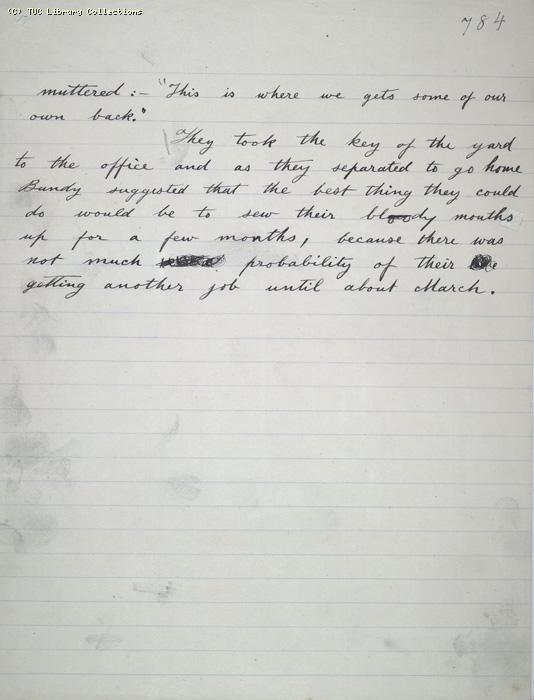 (C) TUC Library Collections
784
muttered :- "This is where we gets some of our
own back."
They took the key of the yard
to the office and as they separated to go home
Bundy suggested that the best thing they could
do would be to sew their bloody mouths
up for a few months, because there was
not much probability of their
getting another job until about March.